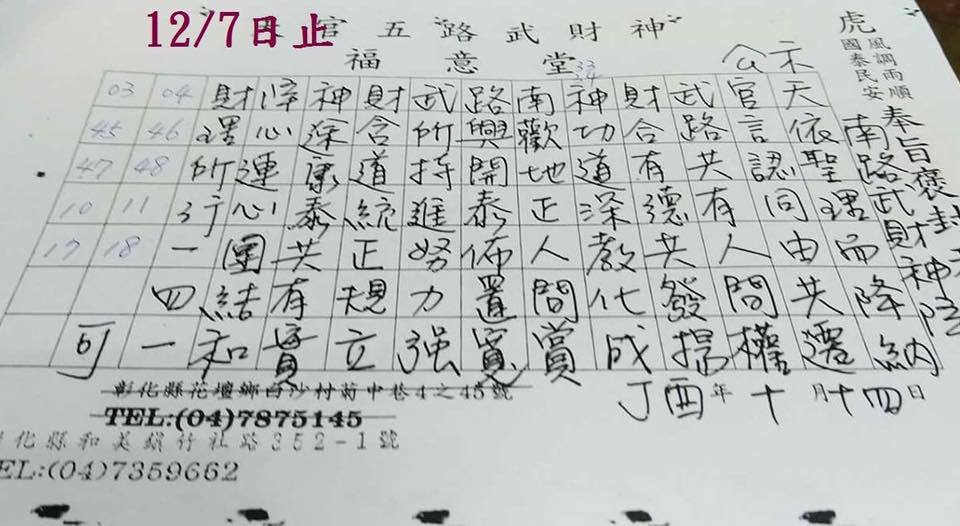 12/7日止
官五路武財神
福意堂
33
34
虎
風調雨順
國泰民安
公示
奉旨褒封
南路武財神降
天依聖理而降納
官言認同由共遷
武路共有人間權
財合有德共發揚
神功道深教化成
南歡地正人間賞
路興開泰佈置寬
武所持進努力强
財合道統正規立
神深康泰共有貴
降心運心團結和
財理所行一四一
04 46 48 11 18
03 45 47 10 17
可
丁酉年十月十四日
彰化縣花壇鄉白沙村菊中巷4之45號
TEL:(04)7875145
化縣和美鎮竹社路352-1號
TEL:(04)7359662